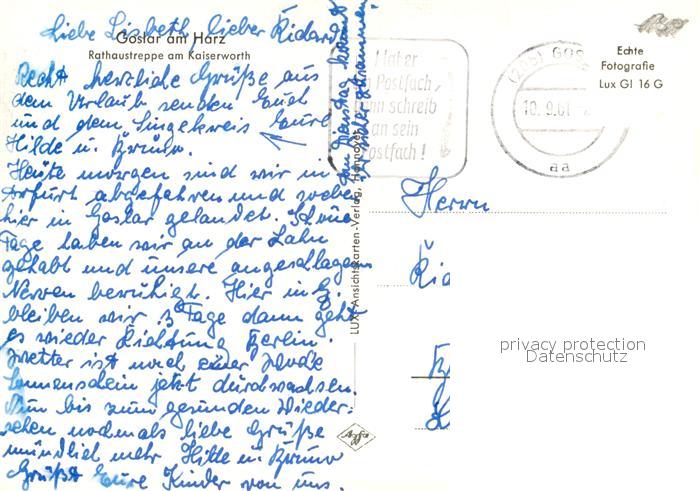 Liebe Lisbeth, lieber Richard
Goslar am Harz
Rathaustreppe am Kaiserworth
Recht herzliche Grüße aus
dem Urlaub senden Euch
und dem Singekreis Eure
Hilde u. Bruno.
Heute morgen sind wir in
abgefahren und soeben
hier in Goslar gelandet. Schöne
Tage haben wir an der Lahn
gehabt und unsere angeschlagenen
Nerven beruhigt. Hier in G.
bleiben wir 3 Tage dann geht
es wieder Richtung Berlin.
Wetter ist nach einer Woche
Sonnenschein jetzt durchwachsen.
Nun bis zum gesunden Wieder-
sehen nochmals liebe Grüße
mündlich mehr Hilde u. Bruno
Grüßt Eure Kinder von uns.
Am Dienstag kommt
zusammen
LUX-Ansichtskarten-Verlag, Hannover
Haber
Postfach,
dann schreib
an sein
Postfach!
(20b) GOS
10.9.61
aa
Echte
Fotografie
Lux Gl 16 G
Herrn
Ric
Agfa
privacy protection
Datenschutz